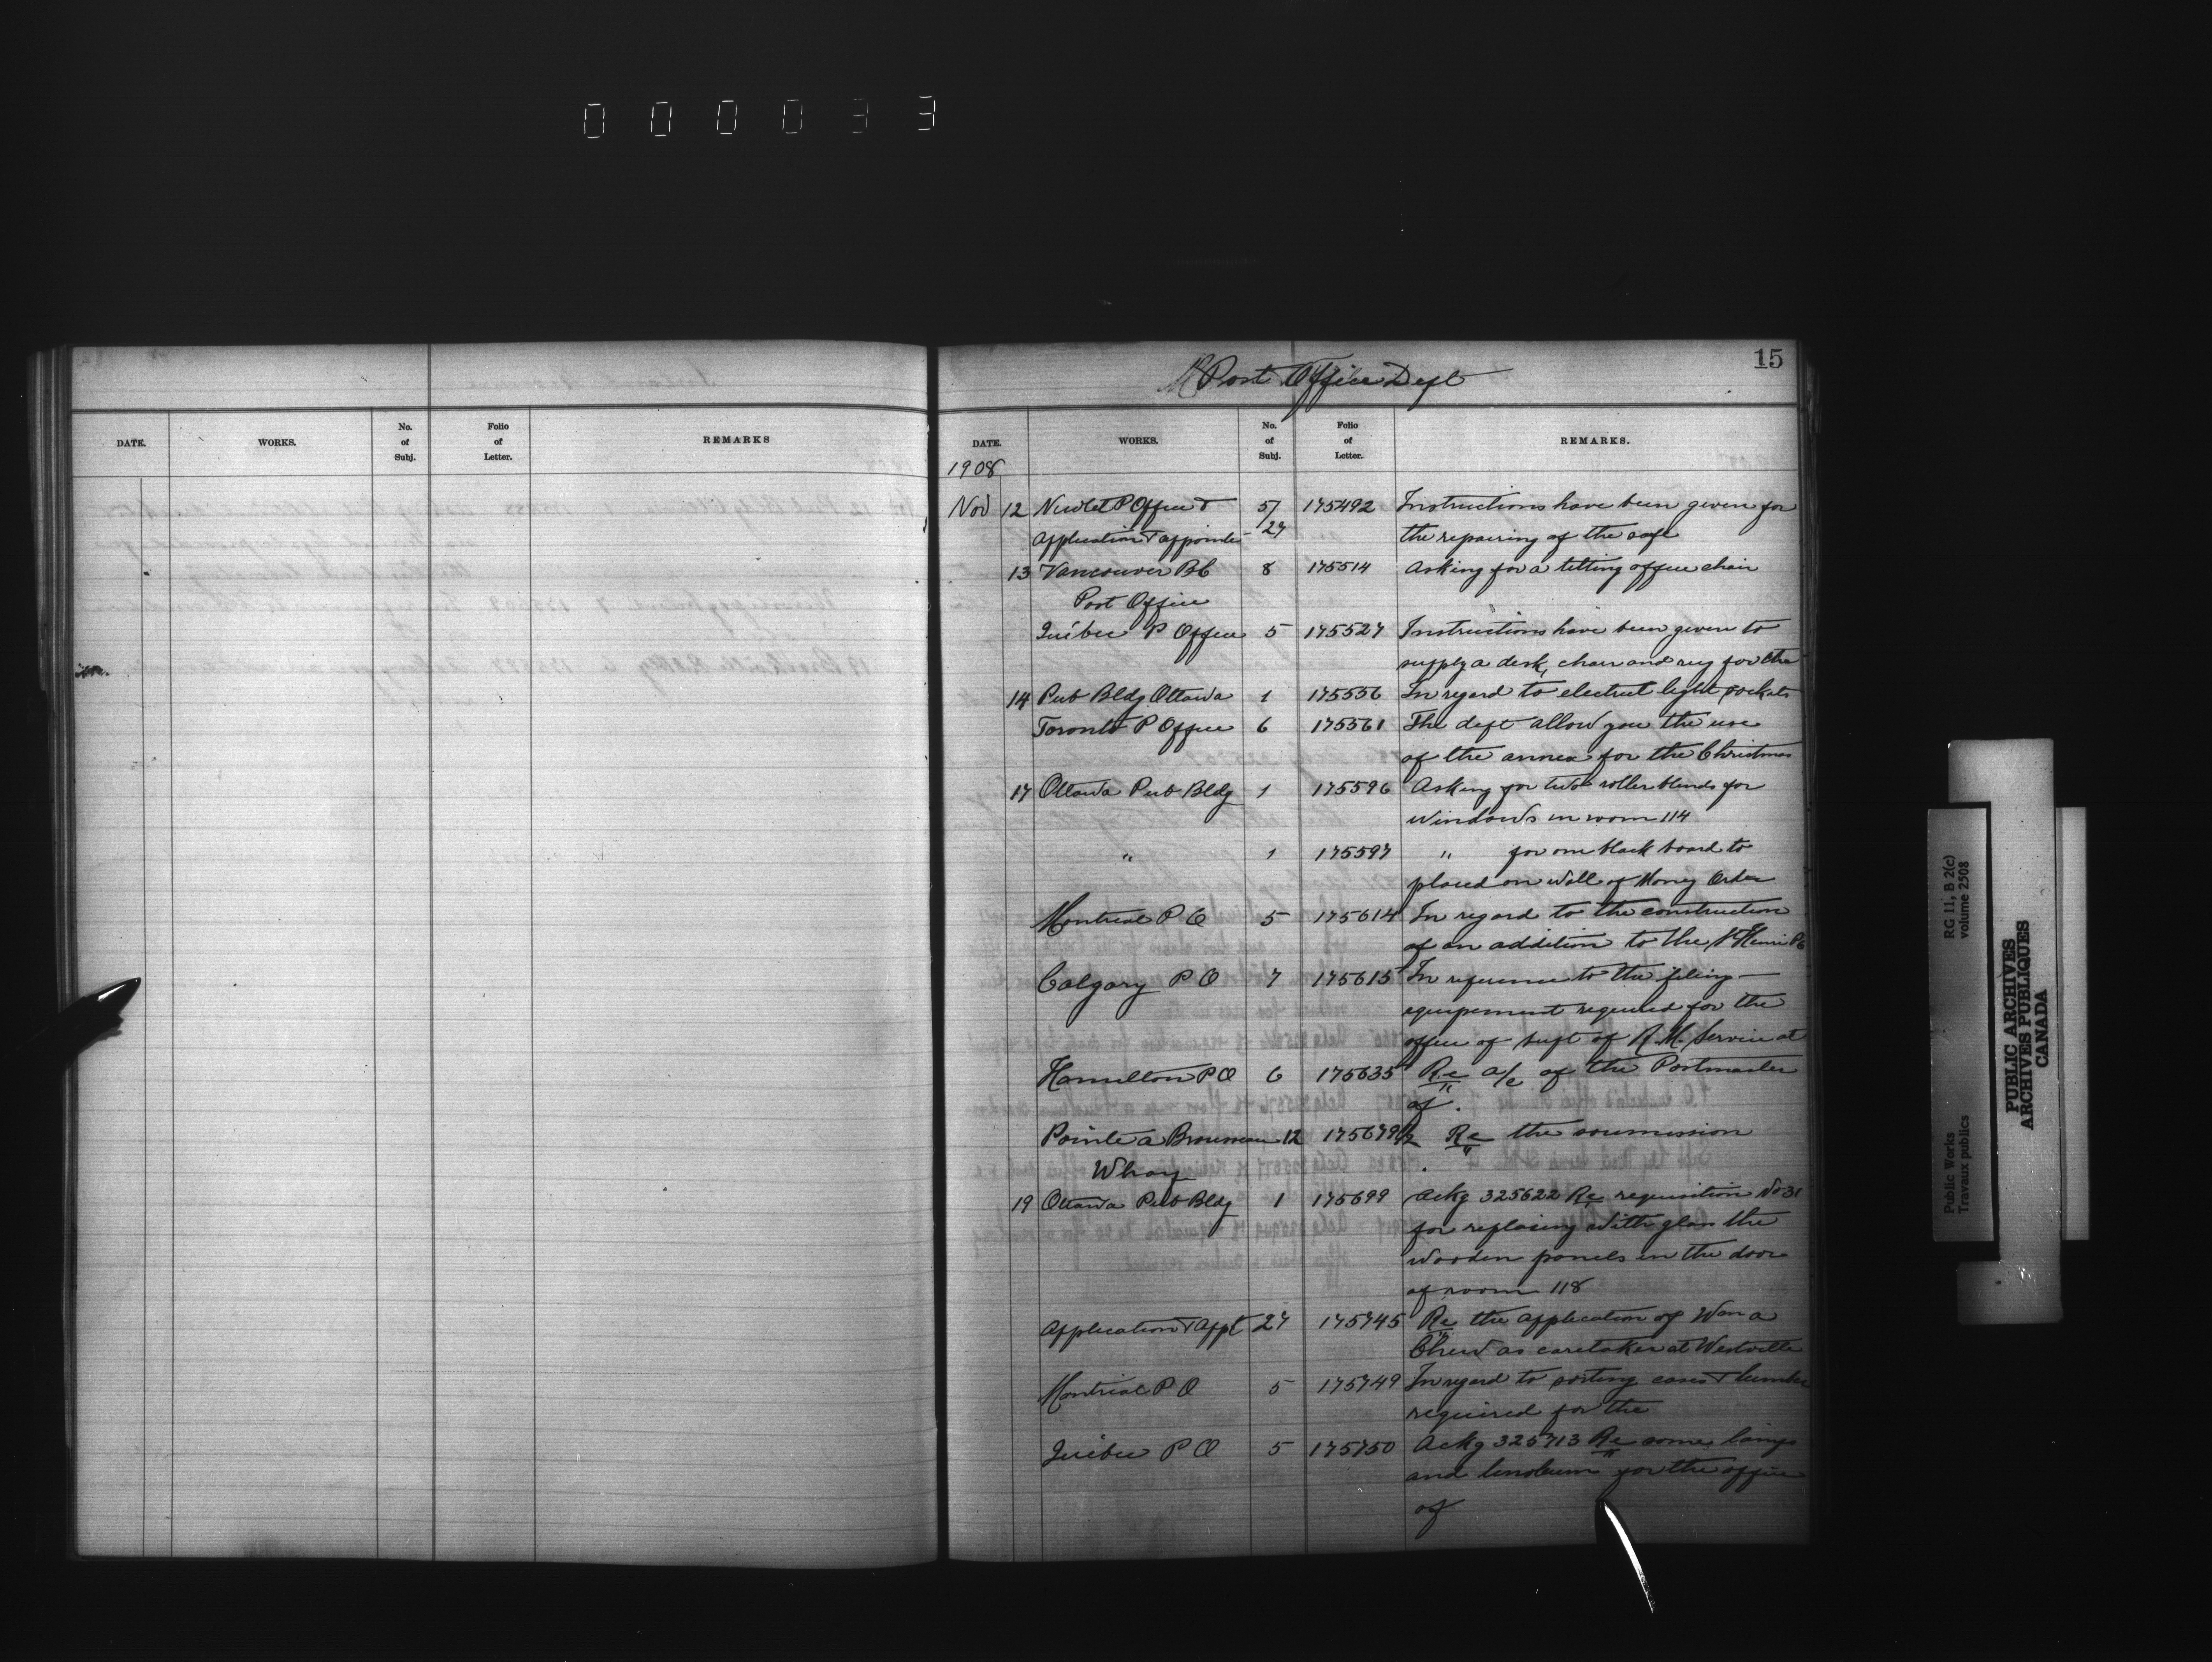 000033
15
Post Office Dept
DATE. WORKS. No. of Subj. Folio of Letter. REMARKS
DATE. WORKS. No. of Subj. Folio of Letter. REMARKS.
1908
Nov 12 P Office & 5/ 175492 Instructions have been given for
Application & appointm 27 the repairing of the safe
13 Vancouver BC 8 175514 Asking for a tilting office chair
Post Office
Québec P Office 5 175527 Instructions have been given to
supply a desk, chair and rug for the
14 Pub Bldg Ottawa 1 175556 In regard to electric light sockets
Toronto P Office 6 175561 The dept allow you the use
of the annex for the Christmas
17 Ottawa Pub Bldg 1 175596 Asking for two roller blinds for
windows in room 114
" 1 175597 " for one black board to
placed on wall of Money Order
Montreal P O 5 175614 In regard to the construction
of an addition to the St Henri PO
Calgary P O 7 175615 In reference to the filing
equipement required for the
office of supt of R.M. Service at
Hamilton P O 6 175635 Re a/c of the Postmaster
of .
Pointe a Brousseau 12 175679½ Re the soumission
Wharf
19 Ottawa Pub Bldg 1 175699 Ackg 325622 Re requisition No 31
for replacing with glass the
wooden panels in the door
of room 118
Application & Appt 27 175745 Re the application of Wm a
Chew as caretaker at Westville
Montreal P O 5 175749 In regard to sorting cases & lumber
required for the
Québec P O 5 175750 Ackg 325713 Re some lamps
and linoleum for the office
of
RG 11, B 2(c)
volume 2508
Public Works
Travaux publics
PUBLIC ARCHIVES
ARCHIVES PUBLIQUES
CANADA